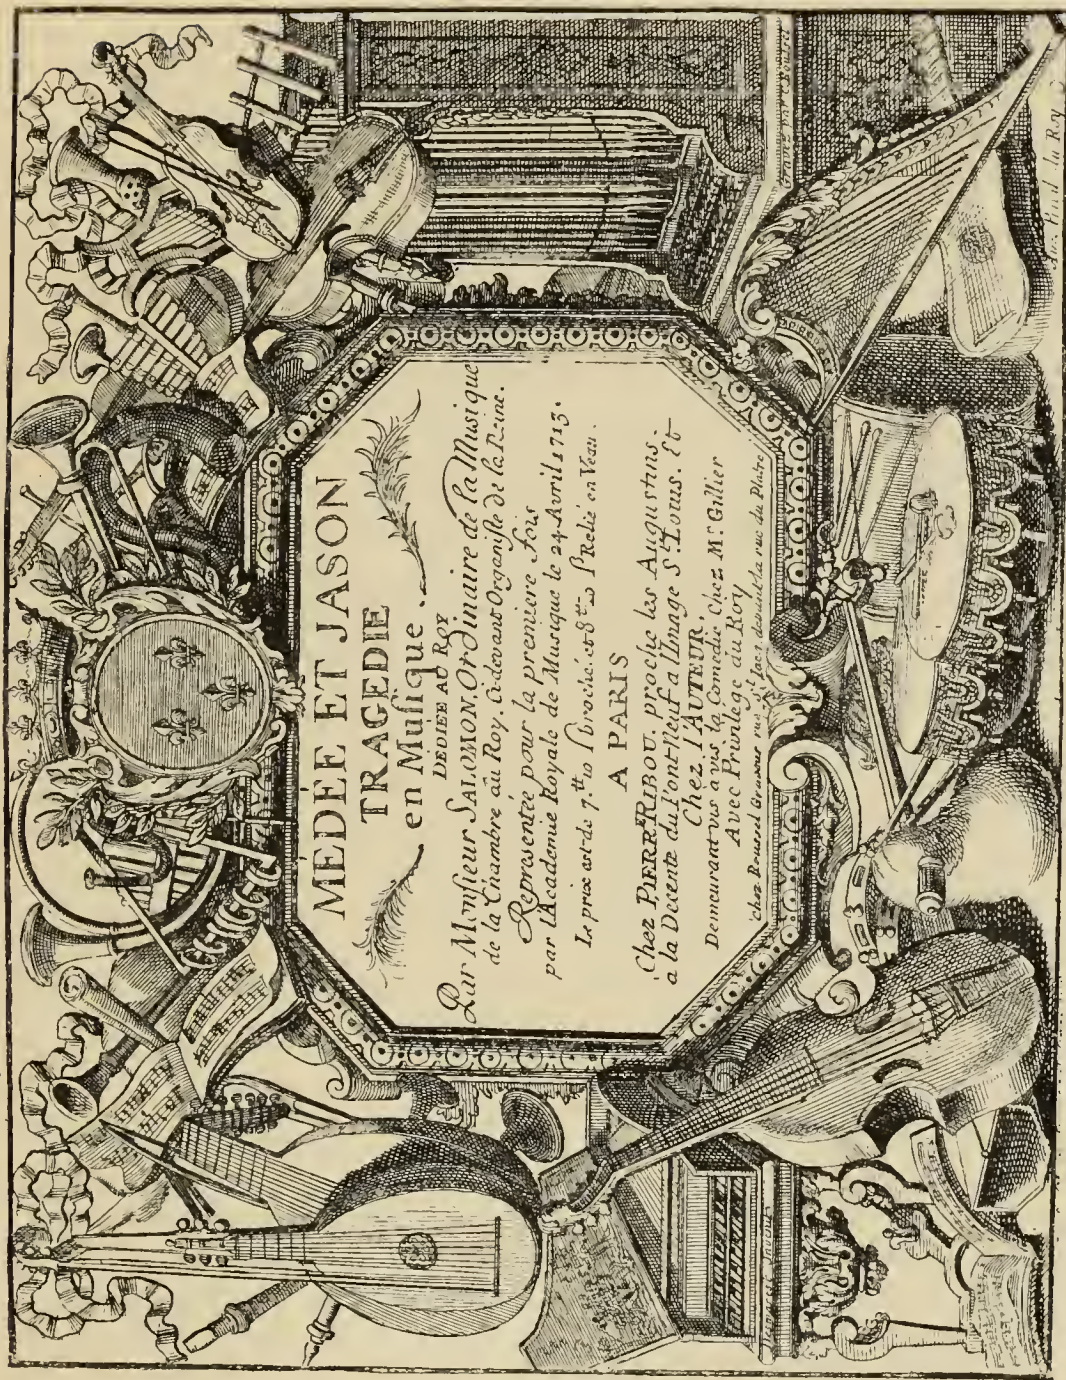 MÉDÉE ET JASON
TRAGEDIE
en Musique.
DÉDIÉE AU ROY
Par Monsieur SALOMON Ordinaire de la Musique
de la Chambre du Roy, Ci-devant Organiste de la Reine.
Representée pour la premiere fois
par l'Academie Royale de Musique le 24. Avril 1713.
Le prix est de 7.tt 10 s broché et 8.tt 10 s Relié en Veau.
A PARIS
Chez PIERRE RIBOU, proche les Augustins.
a la Decente du Pont-Neuf a l'Image St. Louis. Et
Chez l'AUTEUR.
Demeurant vis a vis la Comedie Chez Mr. Gillier
Avec Privilege du Roy
chez Roussel Graveur rue St. Jacques devant la rue du Platre